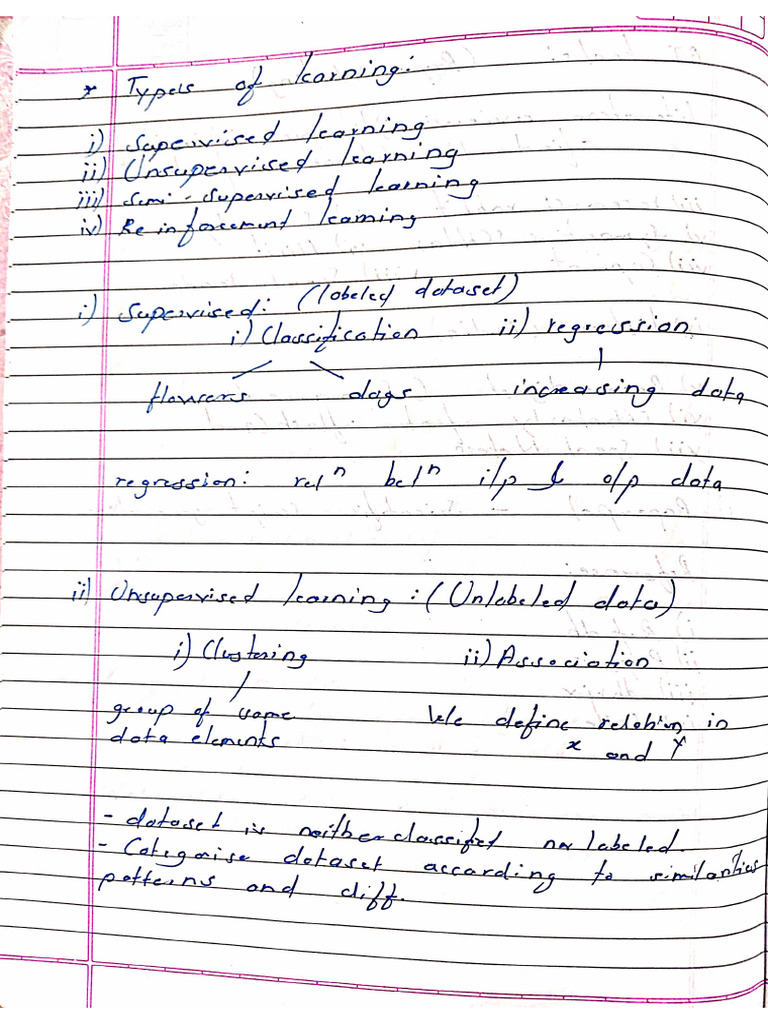 * Types of learning:
i) Supervised learning
ii) Unsupervised learning
iii) Semi-supervised learning
iv) Reinforcement learning
i) Supervised: (labeled dataset)
i) Classification ii) regression
flowers dogs increasing data
regression: relⁿ betⁿ i/p & o/p data
ii) Unsupervised learning: (Unlabeled data)
i) Clustering ii) Association
group of same We define relation in
data elements x and Y
- dataset is neither classified nor labeled.
- Categorise dataset according to similarities
patterns and diff.